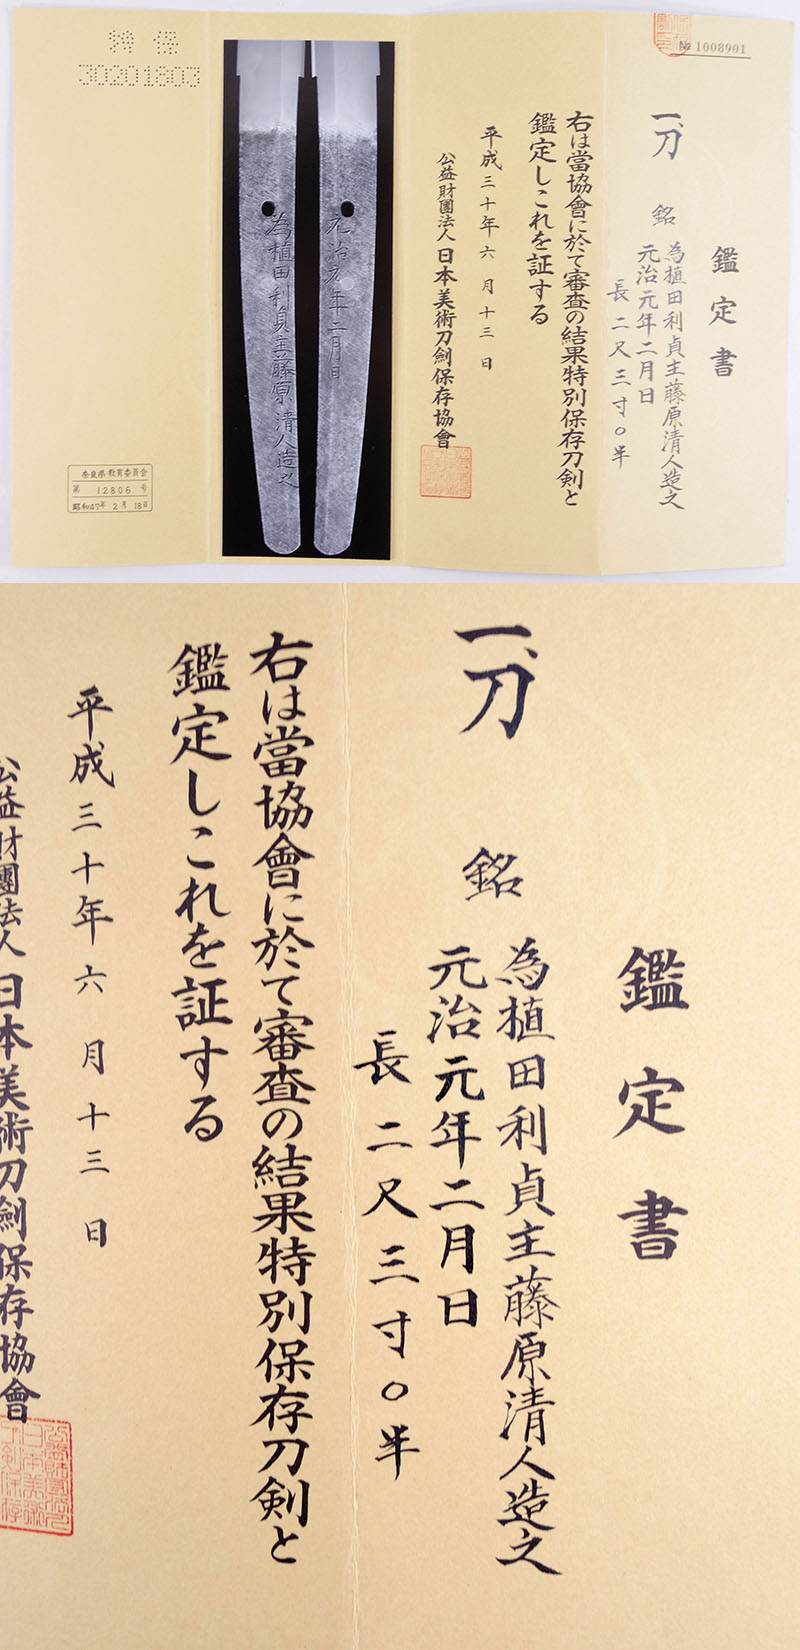 № 1008901
鑑定書
一、刀
銘
為植田利貞主藤原清人造之
元治元年二月日
長二尺三寸〇半
右は當協會に於て審査の結果特別保存刀剣と
鑑定しこれを証する
平成三十年六月十三日
公益財團法人日本美術刀劍保存協會
元治元年二月日
為植田利貞主藤原清人造之
特保
30201603
奈良県教育委員会
第 12806 号
昭和47年 2月 18日
鑑定書
一、刀
銘
為植田利貞主藤原清人造之
元治元年二月日
長二尺三寸〇半
右は當協會に於て審査の結果特別保存刀剣と
鑑定しこれを証する
平成三十年六月十三日
公益財團法人日本美術刀劍保存協會